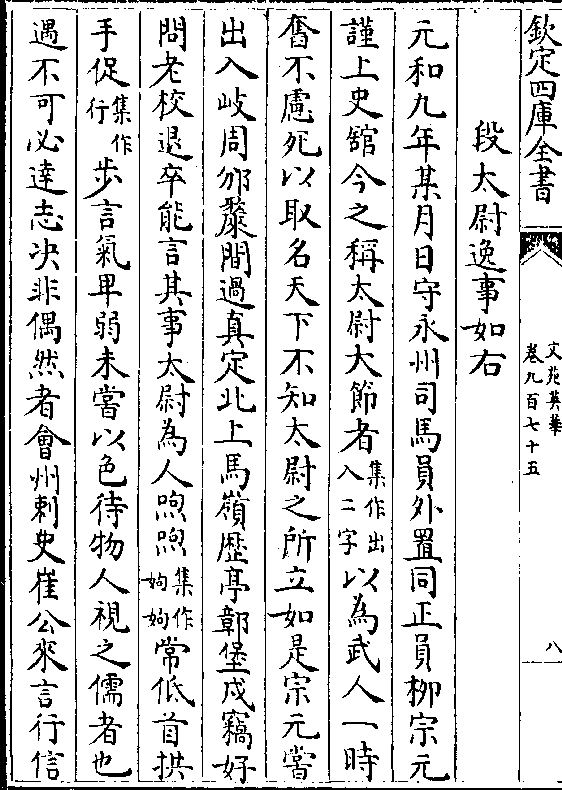 欽定四庫全書
文苑英華
卷九百七十五
八
段太尉逸事如右
元和九年某月日守永州司馬員外置同正員柳宗元
謹上史館今之稱太尉大節者集作出入二字以為武人一時
奮不慮死以取名天下不知太尉之所立如是宗元嘗
出入岐周邠斄間過真定北上馬嶺歴亭鄣堡戍竊好
問老校退卒能言其事太尉為人煦煦集作姁姁常低首拱
手促集作行步言氣卑弱未嘗以色待物人視之儒者也
遇不可必達志决非偶然者會州刺史崔公來言行信